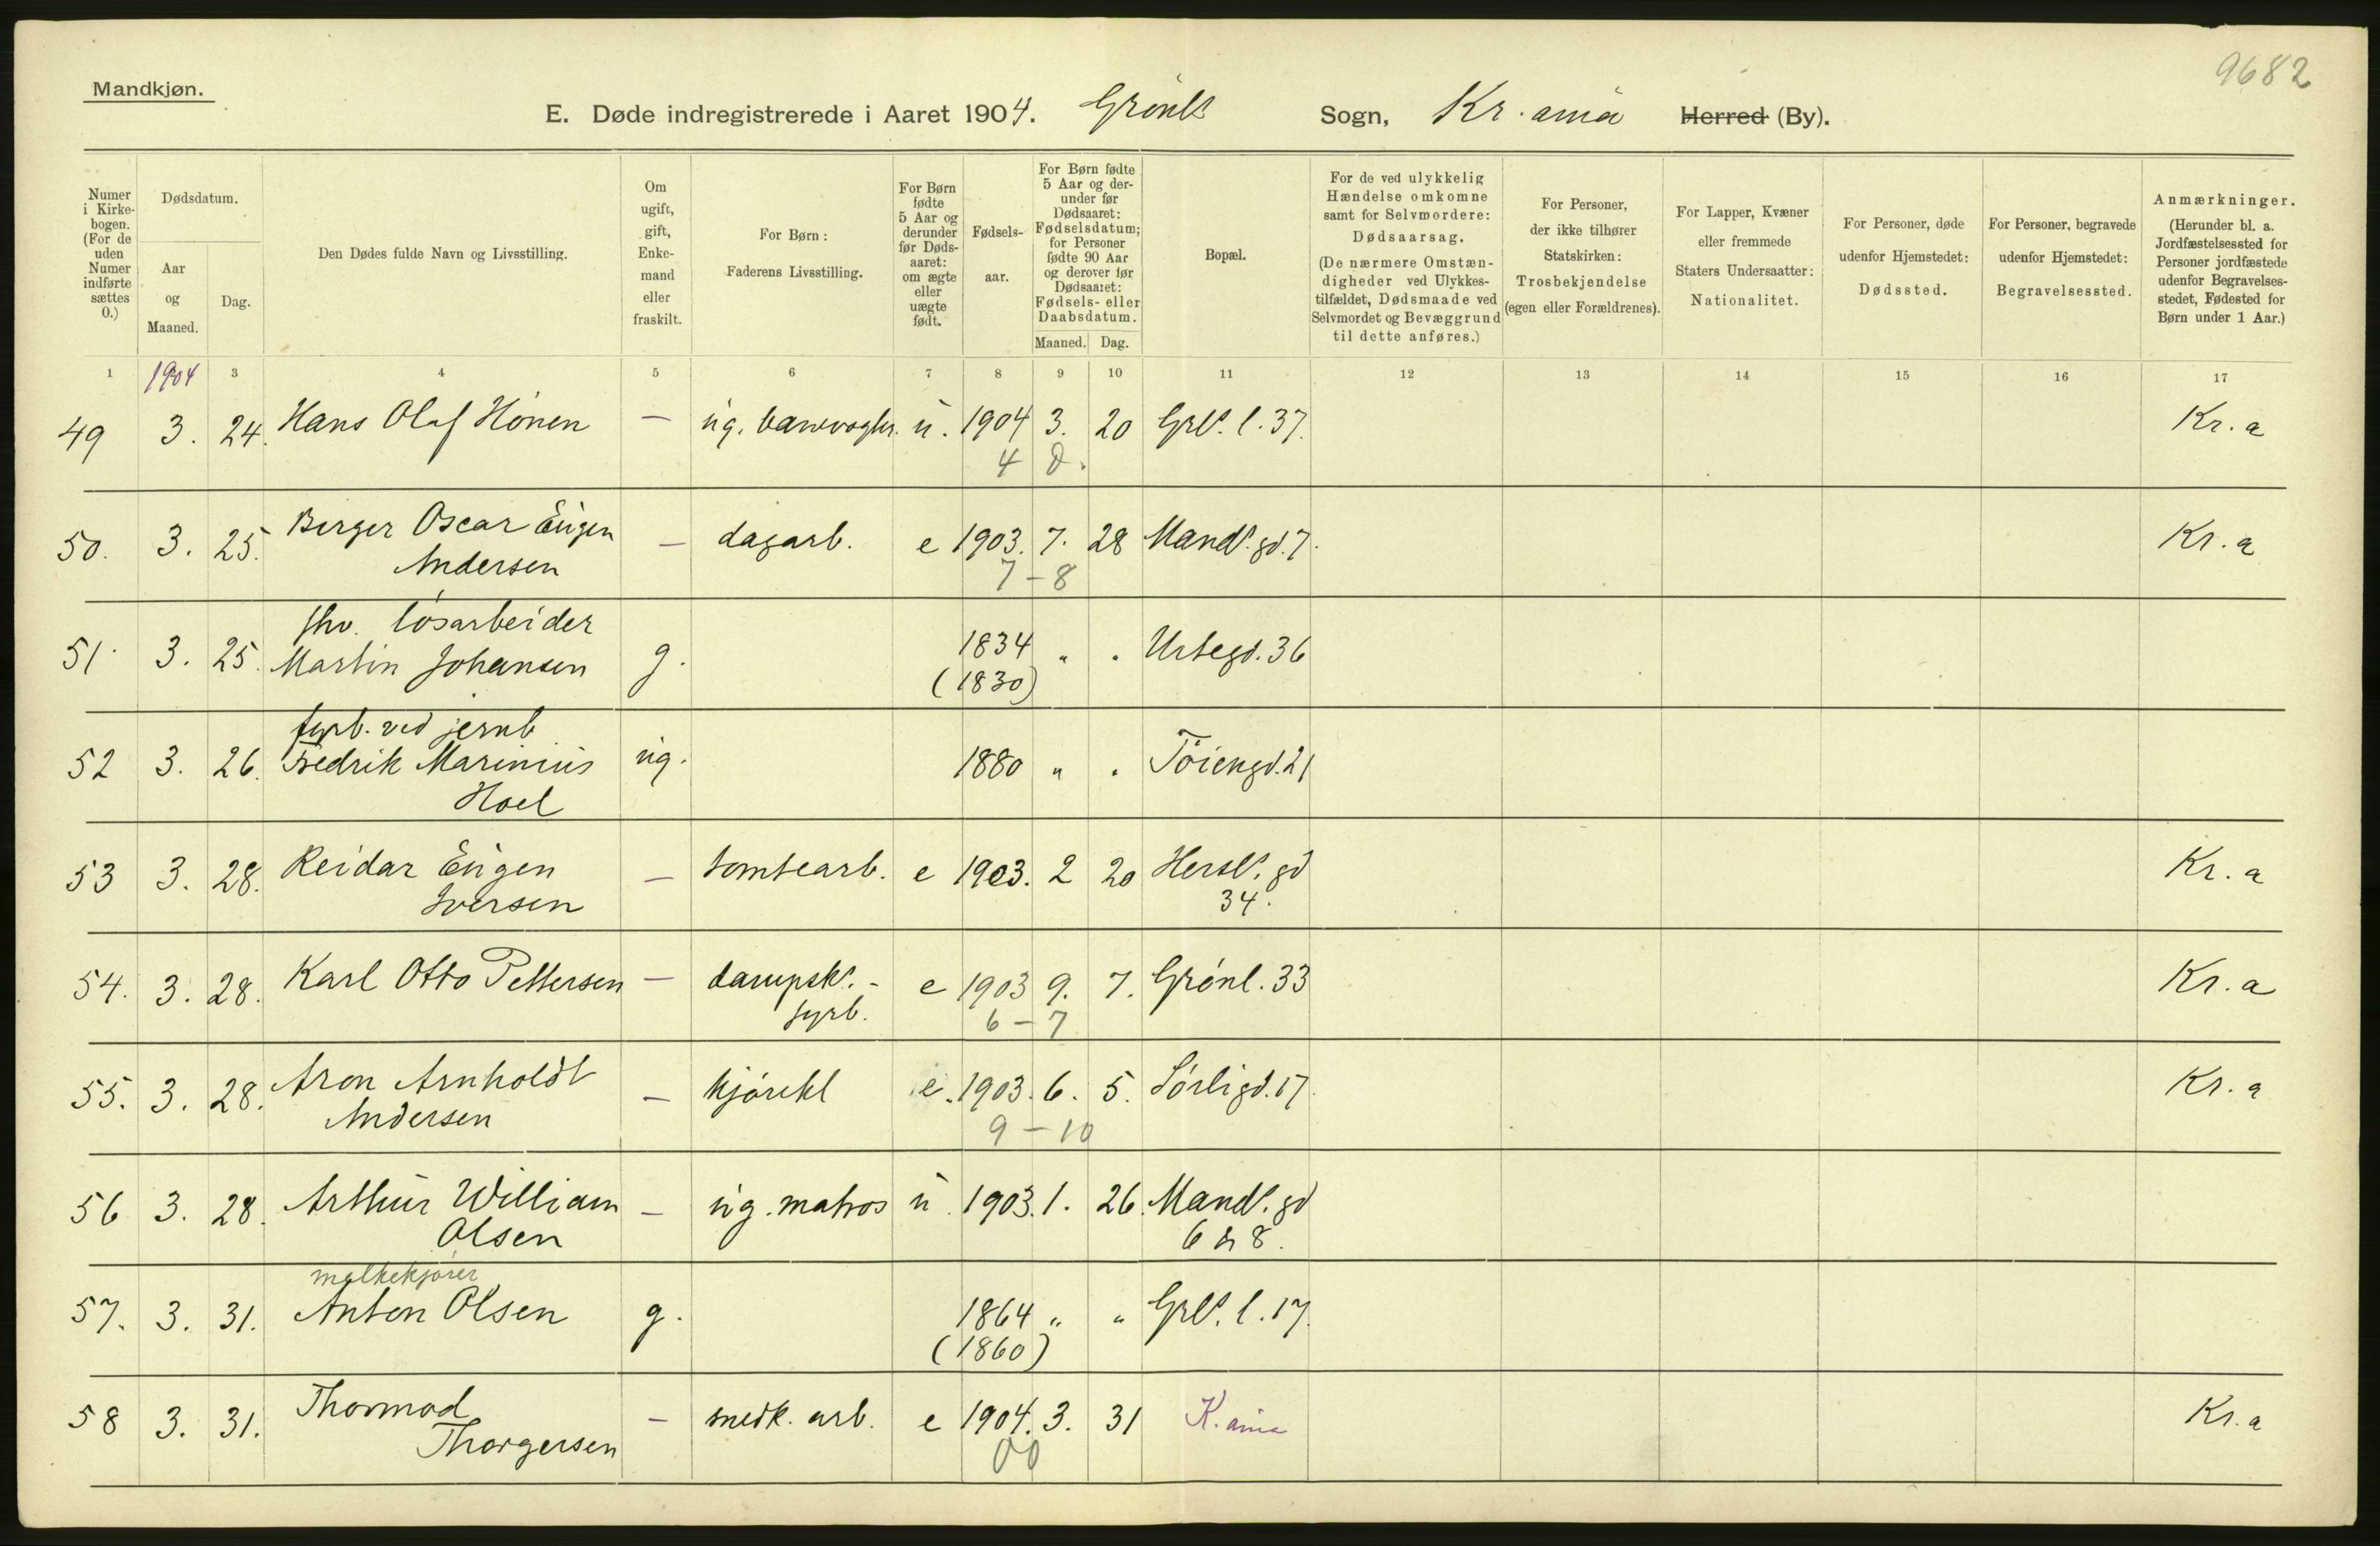 9682
Mandkjøn.
E. Døde indregistrerede i Aaret 1904. Grønl. Sogn, Kr.ania Herred (By).
Numer i Kirkebogen. (For de uden Numer indførte sættes 0.)
Dødsdatum.
Aar og Maaned.
Dag.
Den Dødes fulde Navn og Livsstilling.
Om ugift, gift, Enkemand eller fraskilt.
For Børn: Faderens Livsstilling.
For Børn fødte 5 Aar og derunder før Dødsaaret: om ægte eller uægte født.
Fødselsaar.
For Børn fødte 5 Aar og derunder før Dødsaaret: Fødselsdatum; for Personer fødte 90 Aar og derover før Dødsaaret: Fødsels- eller Daabsdatum.
Maaned. Dag.
Bopæl.
For de ved ulykkelig Hændelse omkomne samt for Selvmordere: Dødsaarsag. (De nærmere Omstændigheder ved Ulykkestilfældet, Dødsmaade ved Selvmordet og Bevæggrund til dette anføres.)
For Personer, der ikke tilhører Statskirken: Trosbekjendelse (egen eller Forældrenes).
For Lapper, Kvæner eller fremmede Staters Undersaatter: Nationalitet.
For Personer, døde udenfor Hjemstedet: Dødssted.
For Personer, begravede udenfor Hjemstedet: Begravelsessted.
Anmærkninger. (Herunder bl. a. Jordfæstelsessted for Personer jordfæstede udenfor Begravelsesstedet, Fødested for Børn under 1 Aar.)
1 1904 3 4 5 6 7 8 9 10 11 12 13 14 15 16 17
49 3. 24. Hans Olaf Hönen — ug. u. 1904 3. 20 Grl. l. 37. Kr. a
4 d.
50. 3. 25. Birger Oscar Eugen — dagarb. e 1903. 7. 28 Mandl. gd. 7. Kr. a
Andersen
7 - 8
fhv. løsarbeider
51. 3. 25. Martin Johansen g. 1834 " . Urtegd. 36
(1830)
fyrb. ved jernb
52 3. 26. Fredrik Marinius ug. 1880 " . Töiengd. 21
Hoel
53 3. 28. Reidar Eugen — tomtearb. e 1903. 2 20 Hersl. gd Kr. a
Iversen 34.
54. 3. 28. Karl Otto Pettersen — dampsk.- e 1903 9. 7. Grönl. 33 Kr. a
fyrb.
6 - 7
55. 3. 28. Aron Arnholdt — kjörekl e. 1903. 6. 5. Sörligd. 17. Kr. a
Andersen
9 - 10
56 3. 28. Arthur William — ug. matros u. 1903. 1. 26. Mandl. gd
Olsen 6 & 8.
melkekjører
57. 3. 31. Anton Olsen g. 1864 " " Grl. l. 17.
(1860)
58 3. 31. Thormod — snedk. arb. e 1904. 3. 31 K.ania Kr. a
Thorgersen
00